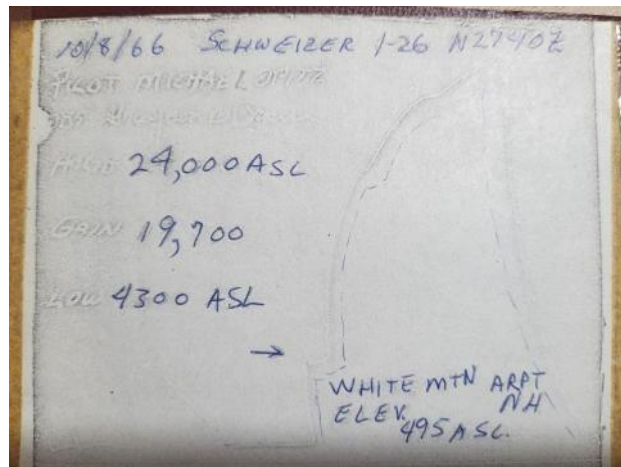 10/8/66 SCHWEIZER 1-26 N2740Z
PILOT MICHAEL OPITZ
HIGH 24,000 ASL
GAIN 19,700
LOW 4300 ASL
→
WHITE MTN ARPT
ELEV. NH
495 ASL.